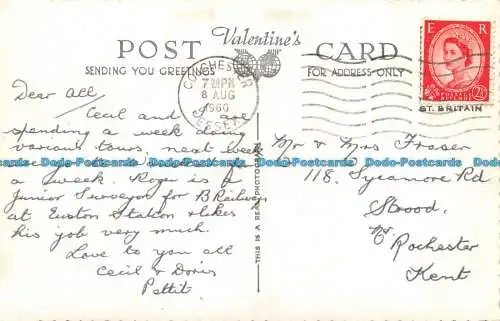 POST Valentine's CARD
SENDING YOU GREETINGS FOR ADDRESS ONLY
COLCHESTER
7 PM
8 AUG
1960
ESSEX
E R
2½
GT. BRITAIN
Dear All,
Cecil and are
spending a week doing
various tours, next week
a week. Roger is a
Junior Surveyor for B Railways
at Euston Station & likes
his job very much.
Love to you all
Cecil & Doris
Pettit
THIS IS A REAL PHOTO
Mr & Mrs Fraser
118, Sycamore Rd
Strood,
Nr Rochester
Kent
Dodo-Postcards Dodo-Postcards Dodo-Postcards Dodo-Postcards Dodo-Postcards Dodo-Postcards